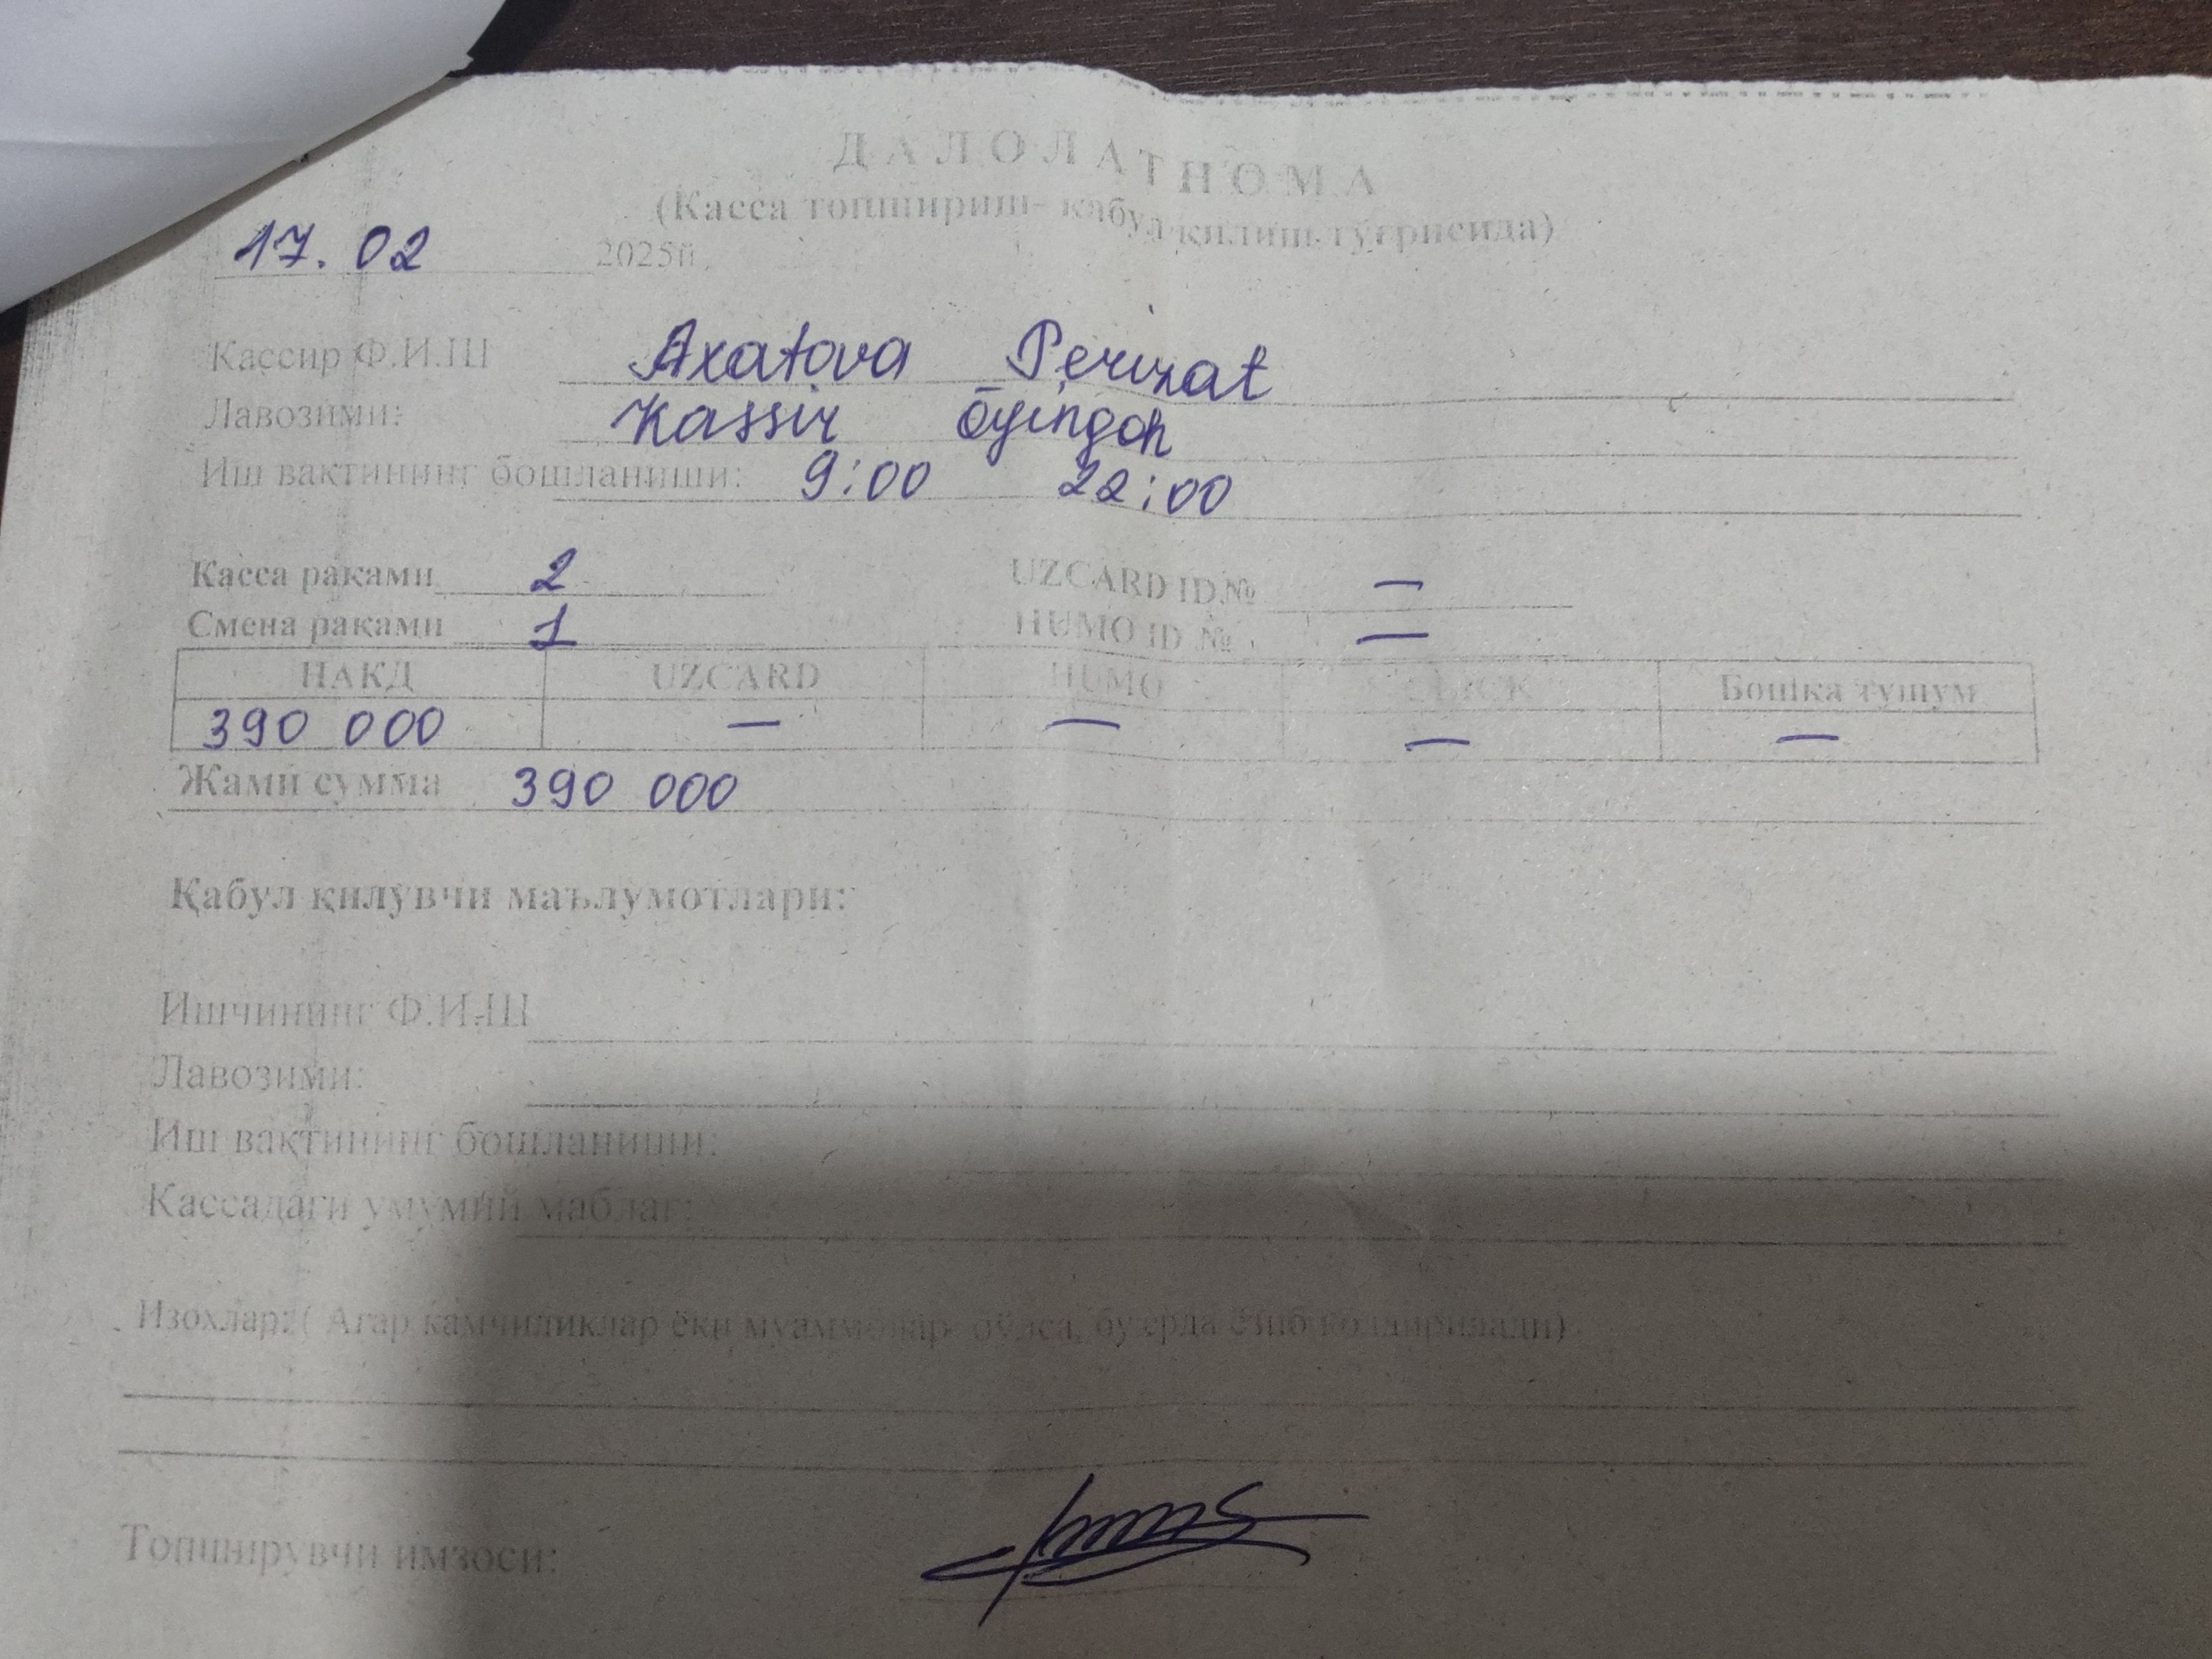 ДАЛОЛАТНОМА
(Касса топшириш- қабул қилиш тўғрисида)
17.02 2025й
Кассир Ф.И.Ш Axatova Perizat
Лавозими: Kassir Ōyingoh
Иш вақтининг бошланиши: 9:00 22:00
Касса рақами 2 UZCARD ID № —
Смена рақами 1 HUMO ID № —
НАКД UZCARD HUMO CLICK Бошқа тушум
390 000 — — — —
Жами сумма 390 000
Қабул қилувчи маълумотлари:
Ишчининг Ф.И.Ш
Лавозими:
Иш вақтининг бошланиши:
Кассадаги умумий маблағ:
Изоҳлар: ( Агар камчиликлар ёки муаммолар бўлса, бу ерда ёзиб қолдирилади)
Топширувчи имзоси: